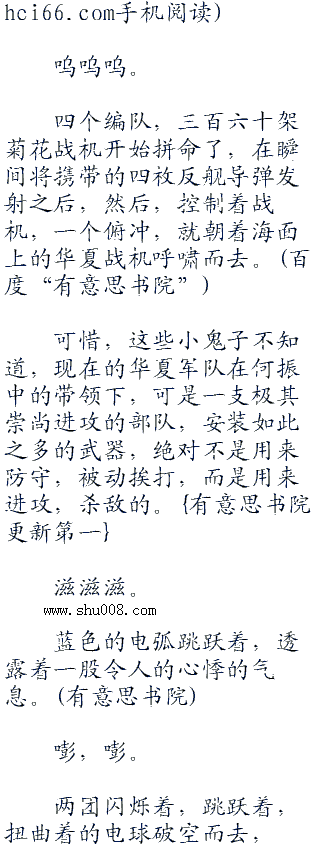 hci66.com手机阅读)
呜呜呜。
四个编队，三百六十架
菊花战机开始拼命了，在瞬
间将携带的四枚反舰导弹发
射之后，然后，控制着战
机，一个俯冲，就朝着海面
上的华夏战机呼啸而去。(百
度“有意思书院”)
可惜，这些小鬼子不知
道，现在的华夏军队在何振
中的带领下，可是一支极其
崇尚进攻的部队，安装如此
之多的武器，绝对不是用来
防守，被动挨打，而是用来
进攻，杀敌的。{有意思书院
更新第一}
滋滋滋。
www.shu008.com
蓝色的电弧跳跃着，透
露着一股令人的心悸的气
息。(有意思书院)
嘭，嘭。
两团闪烁着，跳跃着，
扭曲着的电球破空而去，